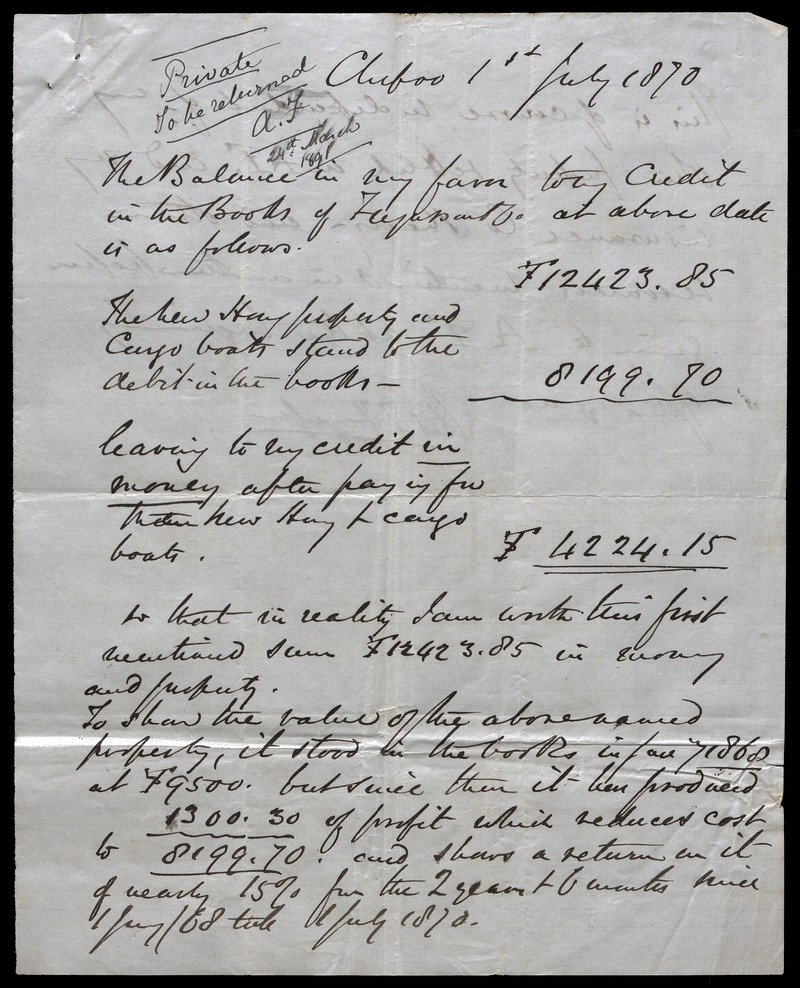 Private
To be returned
A.F
24th March
1891
Chefoo 1st July 1870
The Balance in my favor to my Credit
in the Books of Fergusson & Co. at above date
is as follows.
₮12423.85
The new Hong property and
Cargo boats stand to the
debit in the books —
8199.70
leaving to my credit in
money after paying for
the new Hong & cargo
boats.
₮ 4224.15
so that in reality I am worth this first
mentioned sum ₮12423.85 in money
and property.
To show the value of the above named
property, it stood in the books in Jany 1868
at ₮9500. but since then it has produced
1300.30 of profit which reduces cost
to 8199.70. and shows a return on it
of nearly 15% for the 2 years & 6 months since
1 Jany/68 till 1 July 1870.